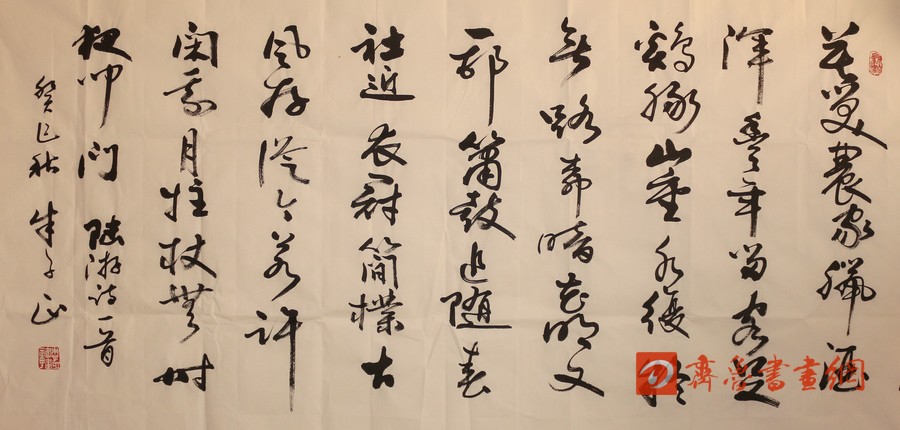 莫笑農家臘酒
渾豐年留客足
鷄豚山重水復疑
無路柳暗花明又
一邨簫鼓追隨春
社近衣冠簡樸古
風存從今若許
閑乘月拄杖無時
夜叩門 陸游詩一首
癸巳秋
齊魯書畫網